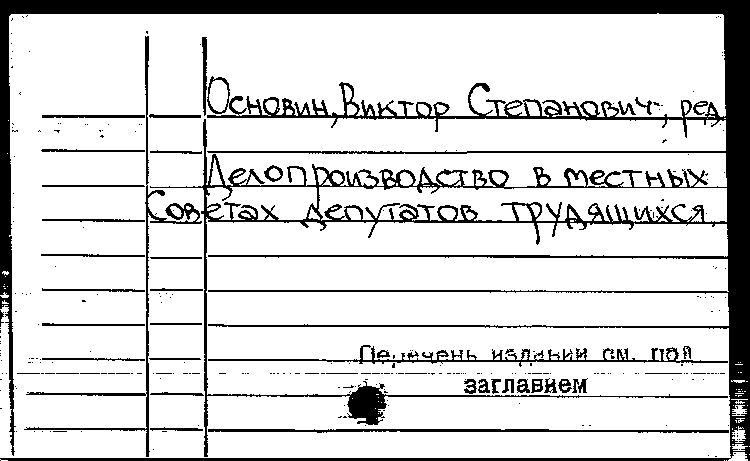 Основин, Виктор Степанович, ред.
Делопроизводство в местных
Советах депутатов трудящихся.
Перечень изданий см. под
заглавием